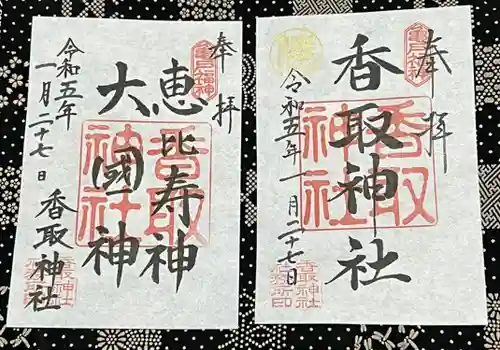 奉拝
恵比寿神
大國神
令和五年
一月二十七日
香取神社
亀戸福神
香取神社
奉拝
香取神社
令和五年一月二十七日
香取神社